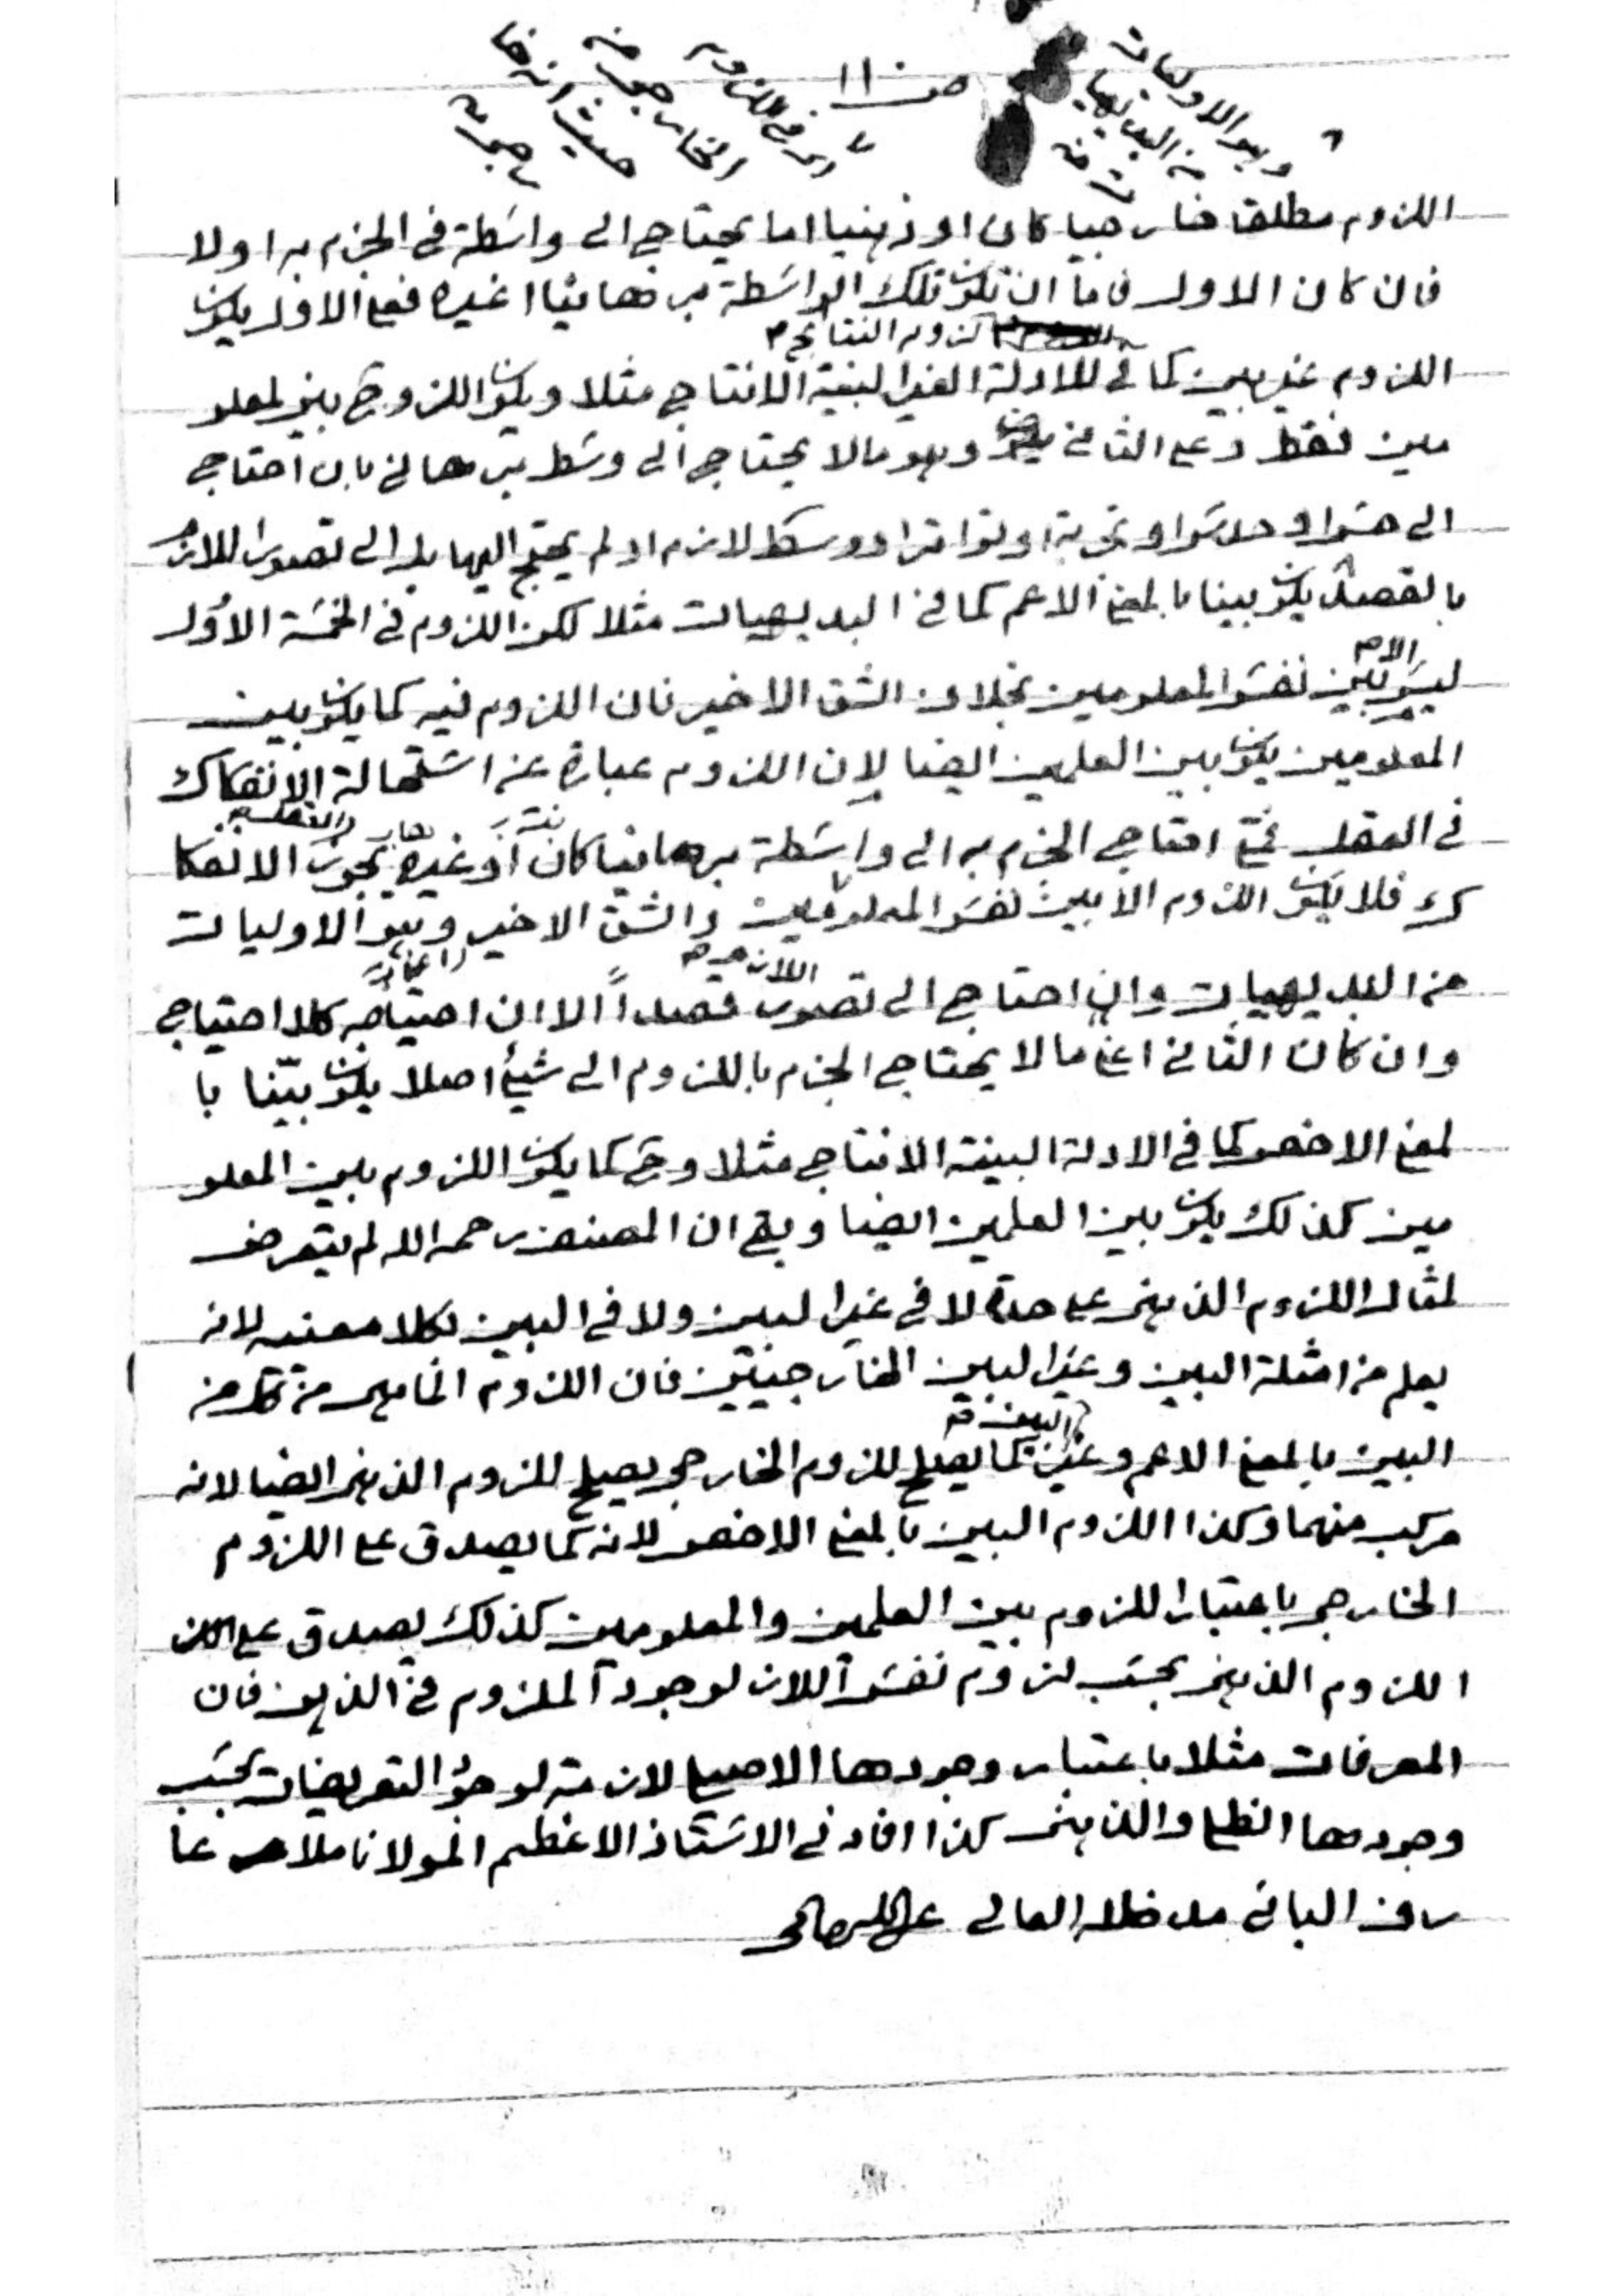 ص ١١
وهو الاوليات
من البديهيا
ت منه
اى فى اللزوم
الخارجى من
حيث انه خا
رجى منه
اللزوم مطلقا خارجيا كان او ذهنيا اما يحتاج الى واسطة فى الجزم به او لا
فان كان الاول فاما ان تكون تلك الواسطة برهانيا او غيره فعلى الاول يكون
لزوم النتايج م
اللزوم غير بين كما فى للادلة الغير البينة الانتاج مثلا ويكون اللزوم ح بين المعلو
مين فقط وعلى الثانى وهو ما لا يحتاج الى وسط برهانى بان احتاج
الى حس او حدس او تجربة او تواتر او وسط لازم او لم يحتج اليها بل الى تصور اللازم
بالقصد يكون بينا بالمعنى الاعم كما فى البديهيات مثلا لكن اللزوم فى الخمسة الاول
ليس الا بين نفس المعلومين بخلاف الشق الاخير فان اللزوم فيه كما يكون بين
المعلومين يكون بين العلمين ايضا لان اللزوم عبارة عن استحالة الانفكاك
فى العقل فمتى احتاج الجزم به الى واسطة برهانيا كان او غيره يجوز الانفكا
ك فلا يكون اللزوم الا بين نفس المعلومين والشق الاخير وهو الاوليات
من البديهيات وان احتاج الى تصور اللازم قصداً الا ان احتياجه كلا احتياج
وان كان الثانى اعنى ما لا يحتاج الجزم باللزوم الى شيئ اصلا يكون بيّنا با
لمعنى الاخص كما فى الادلة البينة الانتاج مثلا وح كما يكون اللزوم بين المعلو
مين كذلك يكون بين العلمين ايضا وبقى ان المصنف رحمه الله لم يتعرض
لمثال اللزوم الذهنى على حدة لا فى غير البين ولا فى البين بكلا معنييه لانه
يعلم من امثلة البين وغير البين الخارجيين فان اللزوم الخارجى من كل من
البين بالمعنى الاعم وغير البين كما يصلح للزوم الخارجى يصلح للزوم الذهنى ايضا لانه
مركب منهما وكذا اللزوم البين بالمعنى الاخص لانه كما يصدق على اللزوم
الخارجى باعتبار اللزوم بين العلمين والمعلومين كذلك يصدق على
اللزوم الذهنى بحسب لزوم نفس اللازم لوجود الملزوم فى الذهن فان
المعرفات مثلا باعتبار وجودها الاصيلى لازمة لوجود التعريفات بحسب
وجودها الظلى والذهنى كذا افاد لى الاستاذ الاعظم المولانا ملا عا
رف البانى مد ظله العالى عبدالله صالحى